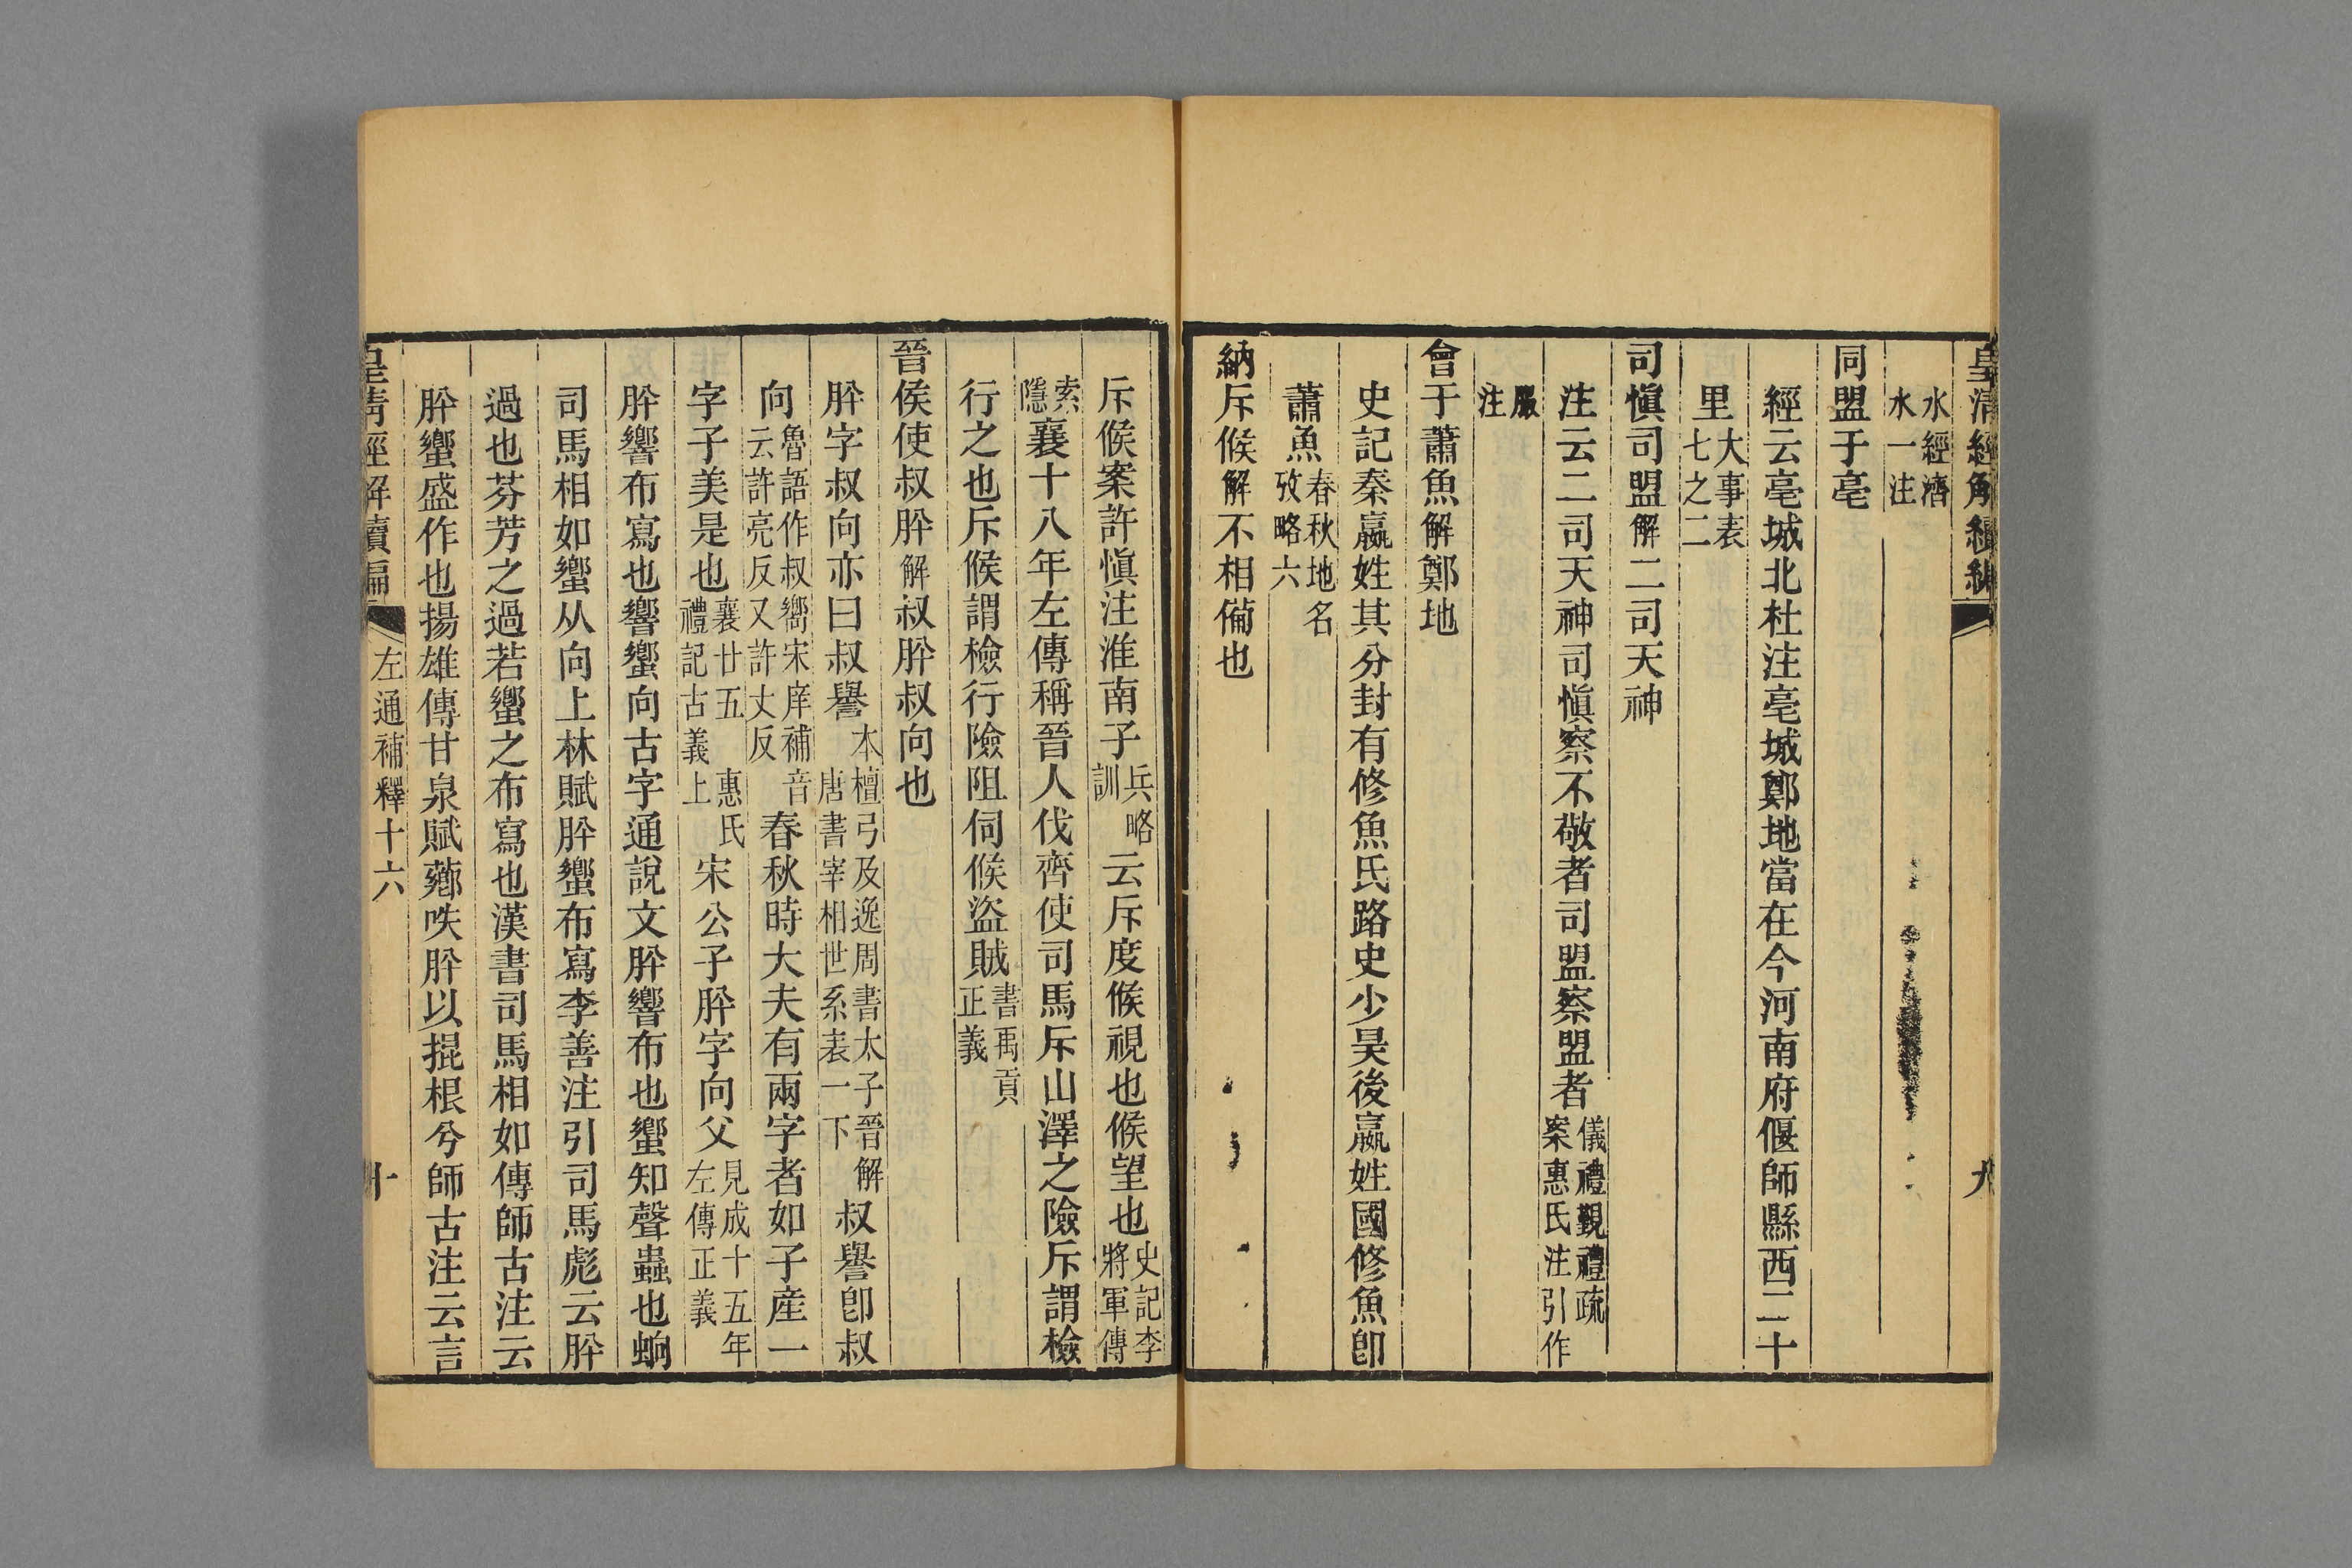 皇清經解續編 九
水經濟水一注
同盟于亳
經云亳城北杜注亳城鄭地當在今河南府偃師縣西二十
里大事表七之二
司愼司盟解二司天神
注云二司天神司愼察不敬者司盟察盟者儀禮觀禮疏案惠氏注引作
服注
會于蕭魚解鄭地
史記秦嬴姓其分封有修魚氏路史少昊後嬴姓國修魚卽
蕭魚春秋地名攷略六
納斥候解不相備也
斥候案許愼注淮南子兵略訓云斥度候視也候望也史記李將軍傳
索隱襄十八年左傳稱晉人伐齊使司馬斥山澤之險斥謂檢
行之也斥候謂檢行險阻伺候盜賊書禹貢正義
晉侯使叔肸解叔肸叔向也
肸字叔向亦曰叔譽本檀弓及逸周書太子晉解唐書宰相世系表一下叔譽卽叔
向魯語作叔嚮宋庠補音云許亮反又許丈反春秋時大夫有兩字者如子産一
字子美是也襄廿五惠氏禮記古義上宋公子肸字向父見成十五年左傳正義
肸響布寫也響蠁向古字通說文肸響布也蠁知聲蟲也蚼
司馬相如蠁从向上林賦肸蠁布寫李善注引司馬彪云肸
過也芬芳之過若蠁之布寫也漢書司馬相如傳師古注云
肸蠁盛作也揚雄傳甘泉賦薌呹肸以掍根兮師古注云言
皇清經解續編 左通補釋十六 十